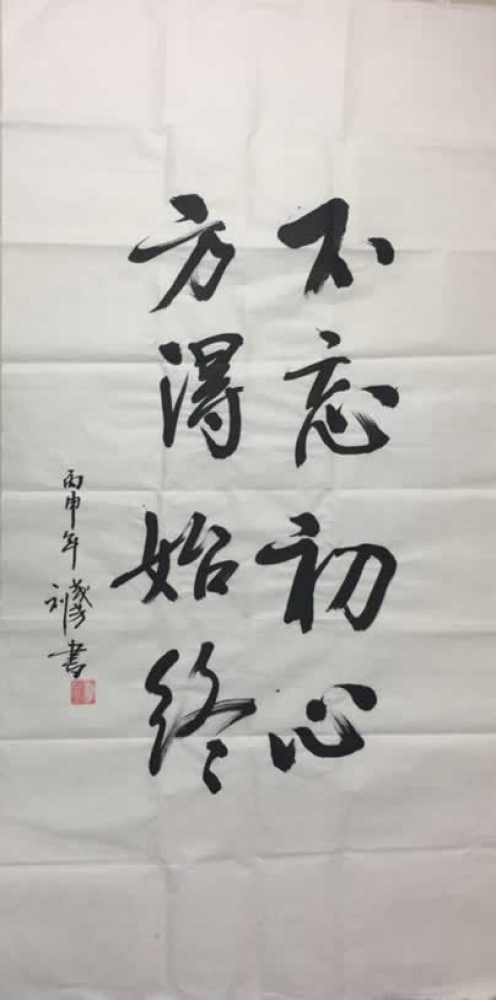 不忘初心
方得始终
丙申年
刘
书